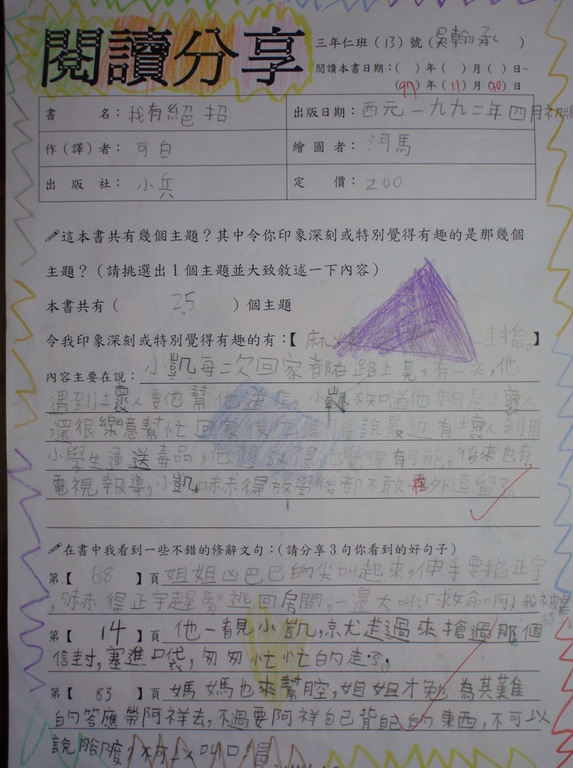 閱讀分享
三年仁班(13)號(吳翰承)
閱讀本書日期:( )年( )月( )日~
(97)年(11)月(20)日
書名:我有絕招
出版日期:西元一九九二年四月初版
作(譯)者:可白
繪圖者:河馬
出版社:小兵
定價:200
這本書共有幾個主題?其中令你印象深刻或特別覺得有趣的是那幾個
主題?(請挑選出1個主題並大致敘述一下內容)
本書共有(25)個主題
令我印象深刻或特別覺得有趣的有:【 封信。】
內容主要在說:小凱每次回家都在路上晃,有一天,他
遇到土裹人要他幫他送信,小凱不知道他們是壞人
還很樂意幫忙 回家後 說最近有壞人利用
小學生運送毒品,他 有可能,後來也有
電視報導,小凱嚇得放學後都不敢在外逗留了
在書中我看到一些不錯的修辭文句:(請分享3句你看到的好句子)
第【68】頁姐姐凶巴巴的尖叫起來,伸手要掐正宇
,嚇得正宇趕緊逃回房間,一邊大叫:「救命啊!我被
第【14】頁他一看見小凱,就走過來搶過那個
信封,塞進口袋,匆匆忙忙的走了。
第【63】頁媽媽也來幫腔,姐姐才勉為其難
的答應帶阿祥去,不過要阿祥自己背自己的東西,不可以
說腳痠,不可以叫口渴